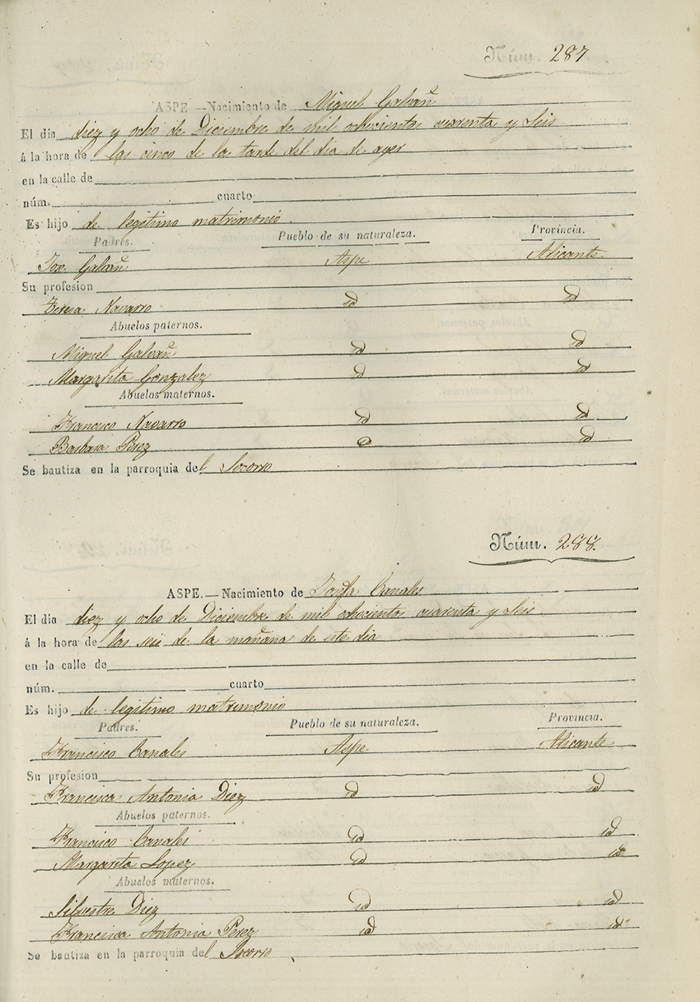 Núm. 287
ASPE.—Nacimiento de Miguel Galvañ
El dia diez y ocho de Diciembre de mil ochocientos cuarenta y seis
á la hora de las cinco de la tarde del dia de ayer
en la calle de
núm. cuarto
Es hijo de legitimo matrimonio
Padres. Pueblo de su naturaleza. Provincia.
Jose Galvañ Aspe Alicante
Su profesion
Teresa Navarro id id
Abuelos paternos.
Miguel Galvañ id id
Margarita Gonzalez id id
Abuelos maternos.
Francisco Navarro id id
Barbara Perez id id
Se bautiza en la parroquia del Socorro
Núm. 288.
ASPE.—Nacimiento de Josefa Canales
El dia diez y ocho de Diciembre de mil ochocientos cuarenta y seis
á la hora de las seis de la mañana de este dia
en la calle de
núm. cuarto
Es hijo de legitimo matrimonio
Padres. Pueblo de su naturaleza. Provincia.
Francisco Canales Aspe Alicante
Su profesion
Francisca Antonia Diez id id
Abuelos paternos.
Francisco Canales id id
Margarita Lopez id id
Abuelos maternos.
Silvestre Diez id id
Francisca Antonia Perez id id
Se bautiza en la parroquia del Socorro